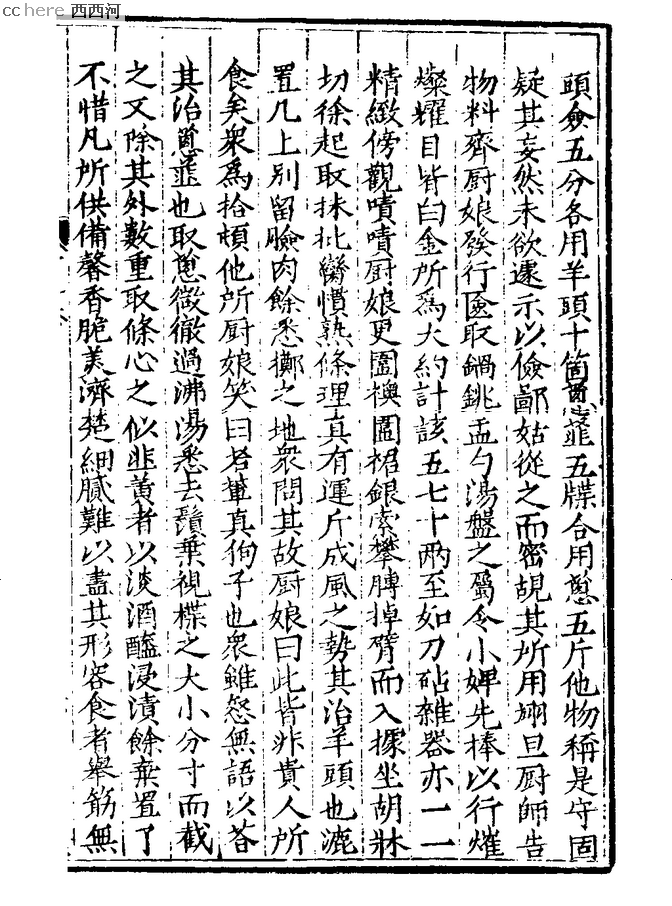 cchere 西西河
頭僉五分各用羊頭十箇葱韮五牒合用葱五斤他物稱是守固
疑其妄然未欲遽示以儉鄙姑從之而密覘其所用翊旦厨師告
物料齊厨娘發行匳取鍋銚盂勺湯盤之屬令小婢先捧以行熣
燦耀目皆白金所爲大約計該五七十兩至如刀砧雜器亦一一
精緻傍觀嘖嘖厨娘更圍襖圍裙銀索攀膊掉臂而入據坐胡牀
切徐起取抹批臠慣熟條理眞有運斤成風之勢其治羊頭也漉
置几上别留臉肉餘悉擲之地衆問其故厨娘曰此皆非貴人所
食矣衆爲拾頓他所厨娘笑曰若輩真狗子也衆雖怒無語以荅
其治葱韮也取葱微徹過沸湯悉去鬚葉視楪之大小分寸而截
之又除其外數重取條心之似韮黄者以淡酒醯浸漬餘棄置了
不惜凡所供備馨香脆美濟楚細膩難以盡其形容食者舉筯無